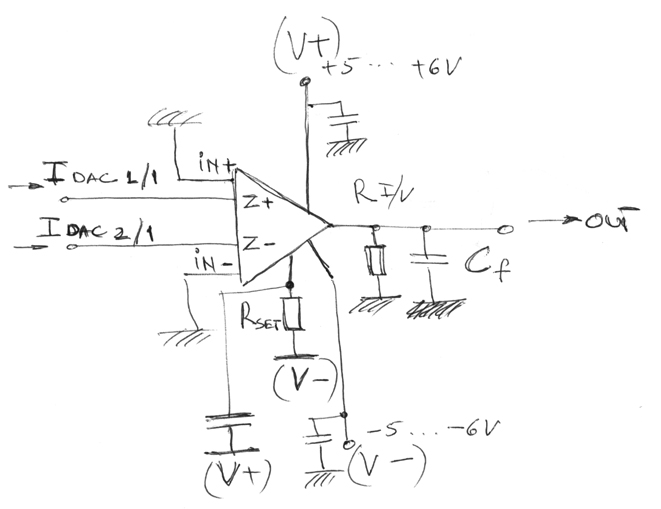 (V+)
+5 ... +6V
IN+
I DAC 1/1
Z+
R I/V
OUT
I DAC 2/1
Z-
IN-
Cf
RSET
(V-)
-5 .... -6V
(V+)
(V-)